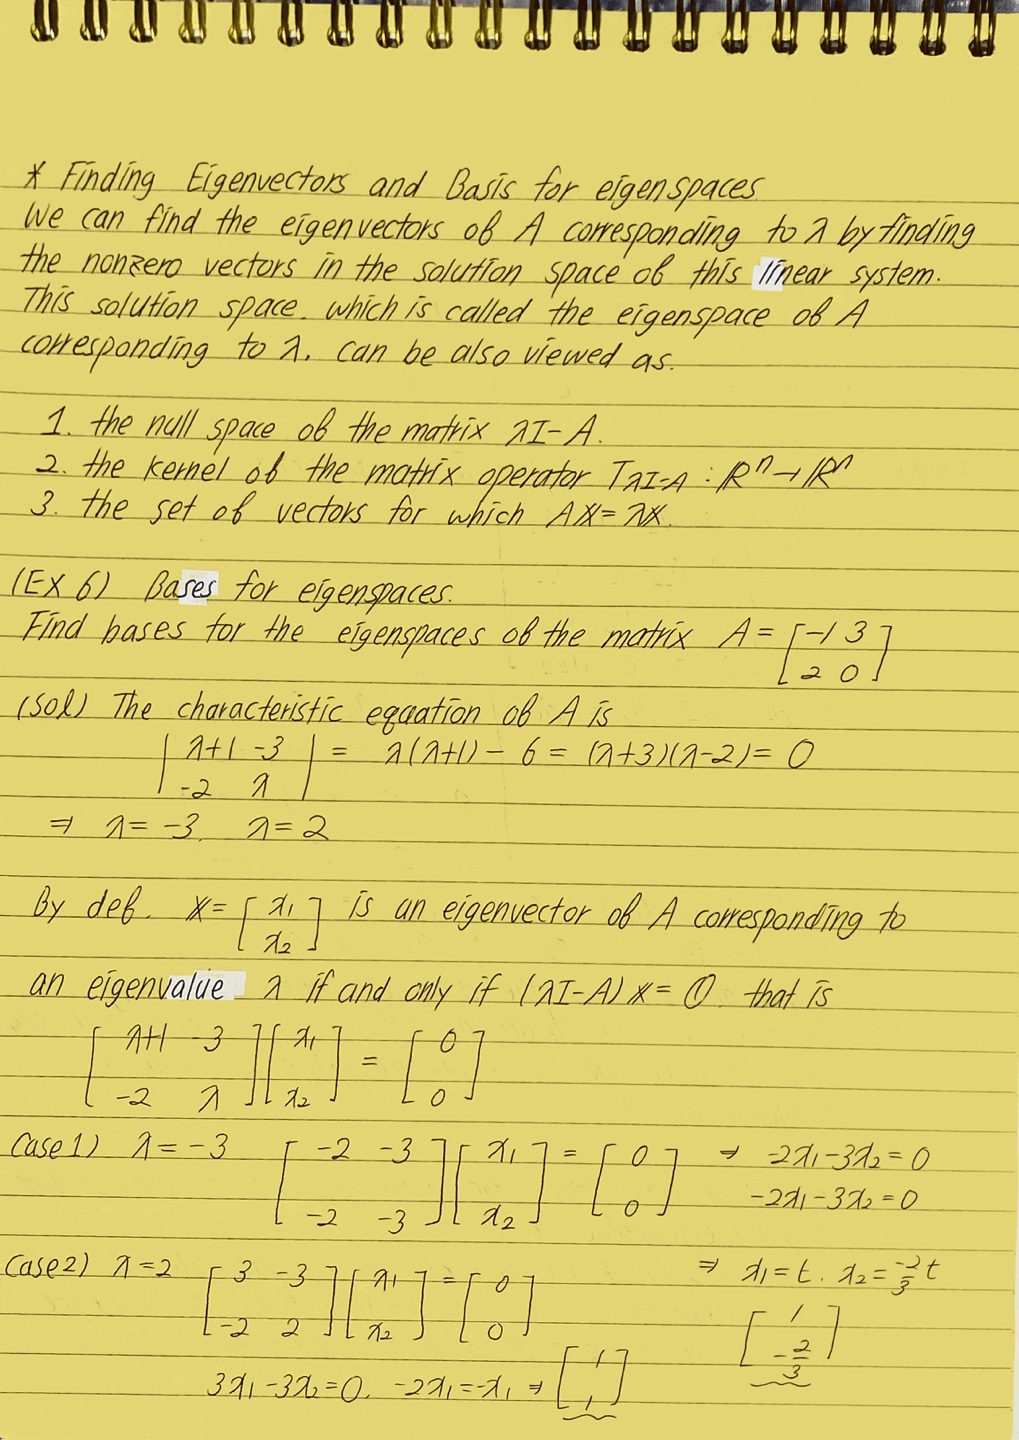 * Finding Eigenvectors and Basis for eigenspaces
We can find the eigenvectors of A corresponding to λ by finding
the nonzero vectors in the solution space of this linear system.
This solution space. which is called the eigenspace of A
corresponding to λ. can be also viewed as.
1. the null space of the matrix λI-A.
2. the kernel of the matrix operator TλI-A : ℝⁿ→ℝⁿ
3. the set of vectors for which A𝕩=λ𝕩.
(Ex 6) Bases for eigenspaces.
Find bases for the eigenspaces of the matrix A = [-1 3
2 0]
(Sol) The characteristic equation of A is
| λ+1 -3 | = λ(λ+1) - 6 = (λ+3)(λ-2) = 0
-2 λ
⇒ λ = -3. λ = 2
By def. 𝕩 = [x₁
x₂] is an eigenvector of A corresponding to
an eigenvalue λ if and only if (λI-A)𝕩 = 𝟘. that is
[ λ+1 -3 ] [ x₁ ] = [ 0 ]
-2 λ x₂ 0
Case1) λ = -3 [ -2 -3 ] [ x₁ ] = [ 0 ] ⇒ -2x₁-3x₂=0
-2 -3 x₂ 0 -2x₁-3x₂=0
Case2) λ=2 [ 3 -3 ] [ x₁ ] = [ 0 ] ⇒ x₁=t. x₂=-2/3 t
-2 2 x₂ 0 [ 1
-2/3 ]
3x₁-3x₂=0. -2x₁=-x₁ ⇒ [ 1
1 ]